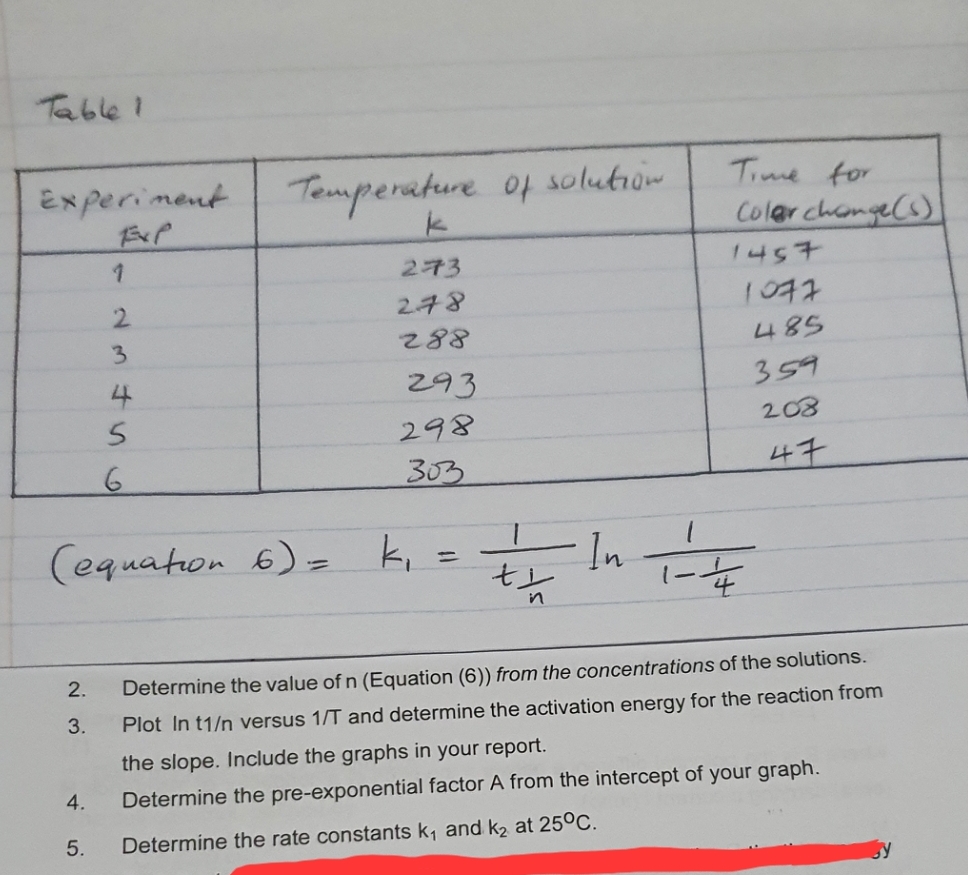 Table 1
Experiment Temperature of solution Time for
Exp k Color change(s)
1 273 1457
2 278 1077
3 288 485
4 293 359
5 298 208
6 303 47
(equation 6) = k₁ = 1/t 1/n ln 1/(1 - 1/4)
2. Determine the value of n (Equation (6)) from the concentrations of the solutions.
3. Plot ln t1/n versus 1/T and determine the activation energy for the reaction from
the slope. Include the graphs in your report.
4. Determine the pre-exponential factor A from the intercept of your graph.
5. Determine the rate constants k₁ and k₂ at 25⁰C.